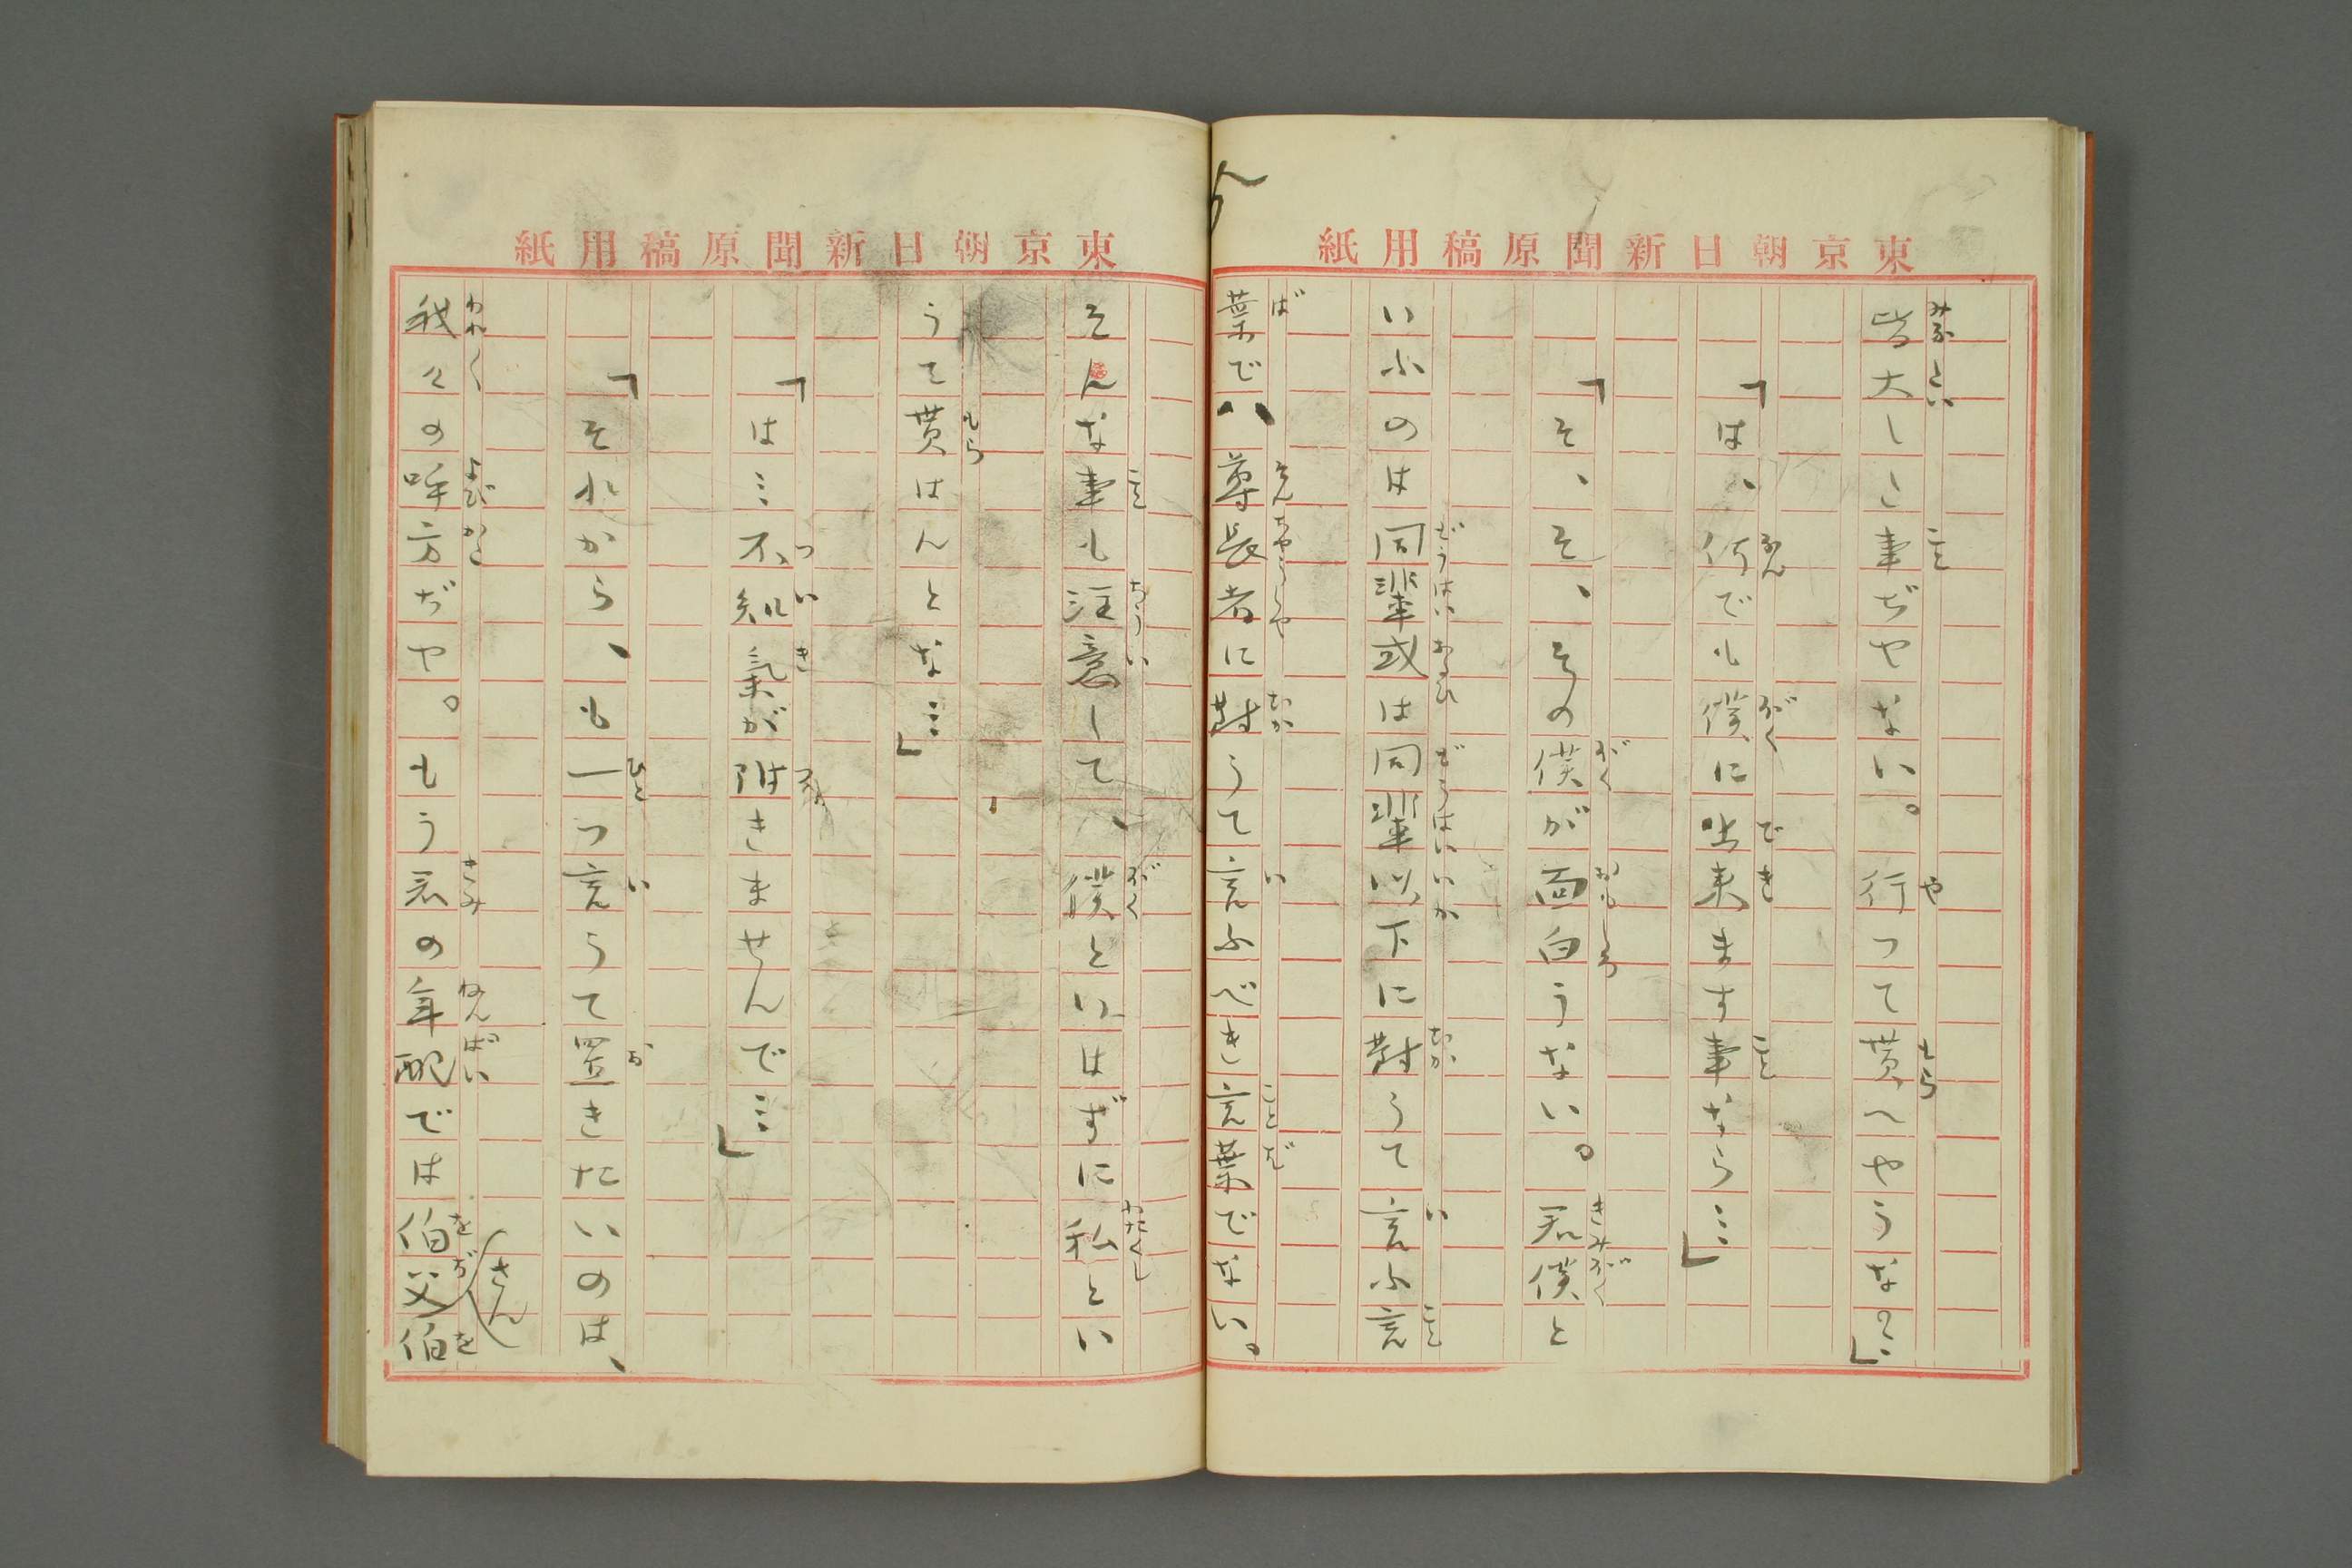 東京朝日新聞原稿用紙
皆大した事ぢやない。行つて貰へやうな？」
「は、何でも僕に出来ます事なら…」
「そ、そ、その僕が面白うない。君僕と
いふのは同輩或は同輩以下に対うて言ふ言
葉で、尊長者に対うて言ふべき言葉でない。
東京朝日新聞原稿用紙
そんな事も注意して、僕といはずに私とい
うて貰はんとな…」
「は…不知気が附きませんで…」
「それから、も一つ言うて置きたいのは、
我々の呼方ぢや。もう君の年配では伯父伯
さん